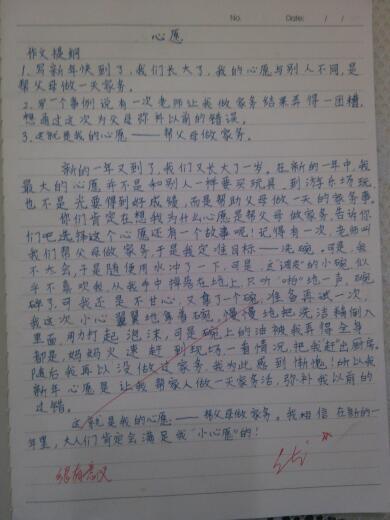 No.
Date: / /
心愿
作文提纲
1.写新年快到了,我们长大了,我的心愿与别人不同,是
帮父母做一天家务。
2.写一个事例说有一次老师让我做家务结果弄得一团糟,
想通过这次为父母弥补以前的错误。
3.这就是我的心愿——帮父母做家务。
新的一年又到了,我们又长大了一岁。在新的一年中,我
最大的心愿并不是和别人一样要买玩具、到游乐场玩,
也不是光要得到好成绩,而是帮助父母做一天的家务事。
你们肯定在想我为什么心愿是帮父母做家务,告诉你
们吧选择这个心愿还有一个故事呢!记得有一次,老师叫
我们帮父母做家务,于是我定准目标——洗碗,可是,我
不大会,于是随便用水冲了一下,可是,这"调皮"的小碗似
乎不喜欢我,从我手中摔落在地上,只听"啪"地一声,碗
碎了,可我还是不甘心,又拿了个碗,准备再试一次,
我这次小心翼翼地拿着碗,慢慢地把洗洁精倒入
里面,用力打起泡沫,可是碗上的油被我弄得全身
都是,妈妈火速赶到现场,一看情况,把我赶出厨房。
随后我再以没做过家务,我为此感到惭愧!所以我
新年心愿是让我帮家人做一天家务活,弥补我以前的
过错。
这就是我的心愿——帮父母做家务。我相信在新的一
年里,大人们肯定会满足我"小心愿"的!
很有意义